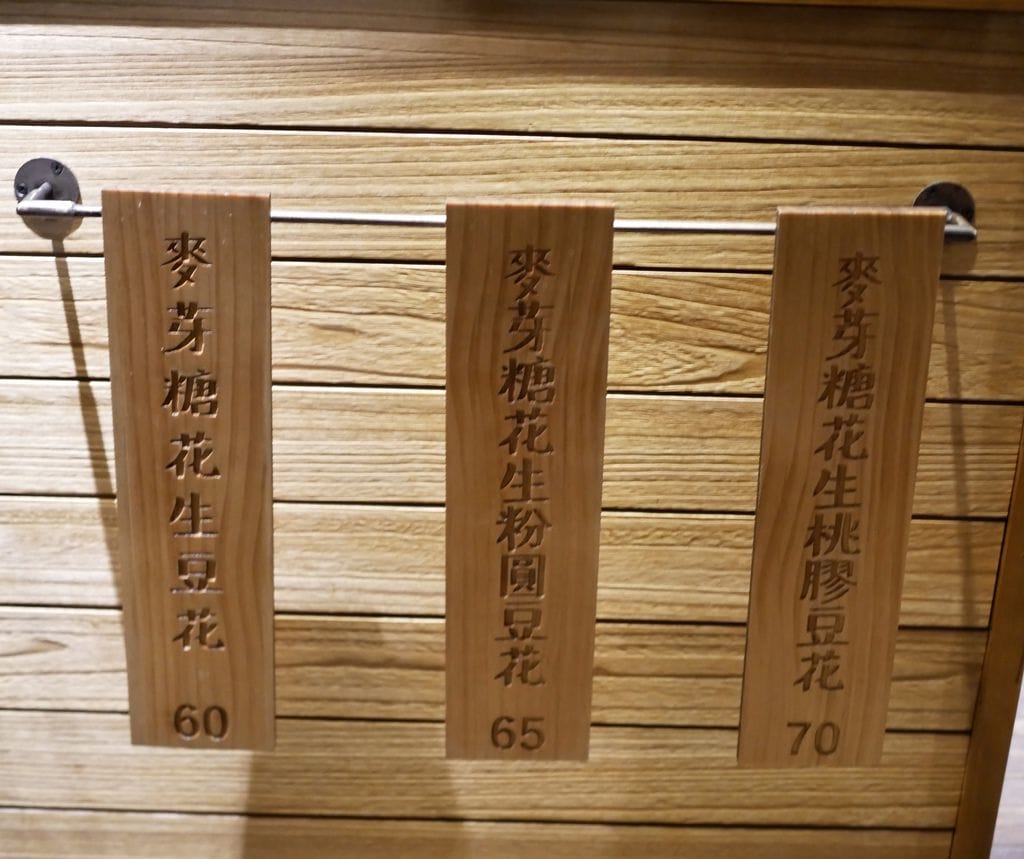 麥芽糖花生豆花
60
麥芽糖花生粉圓豆花
65
麥芽糖花生桃膠豆花
70